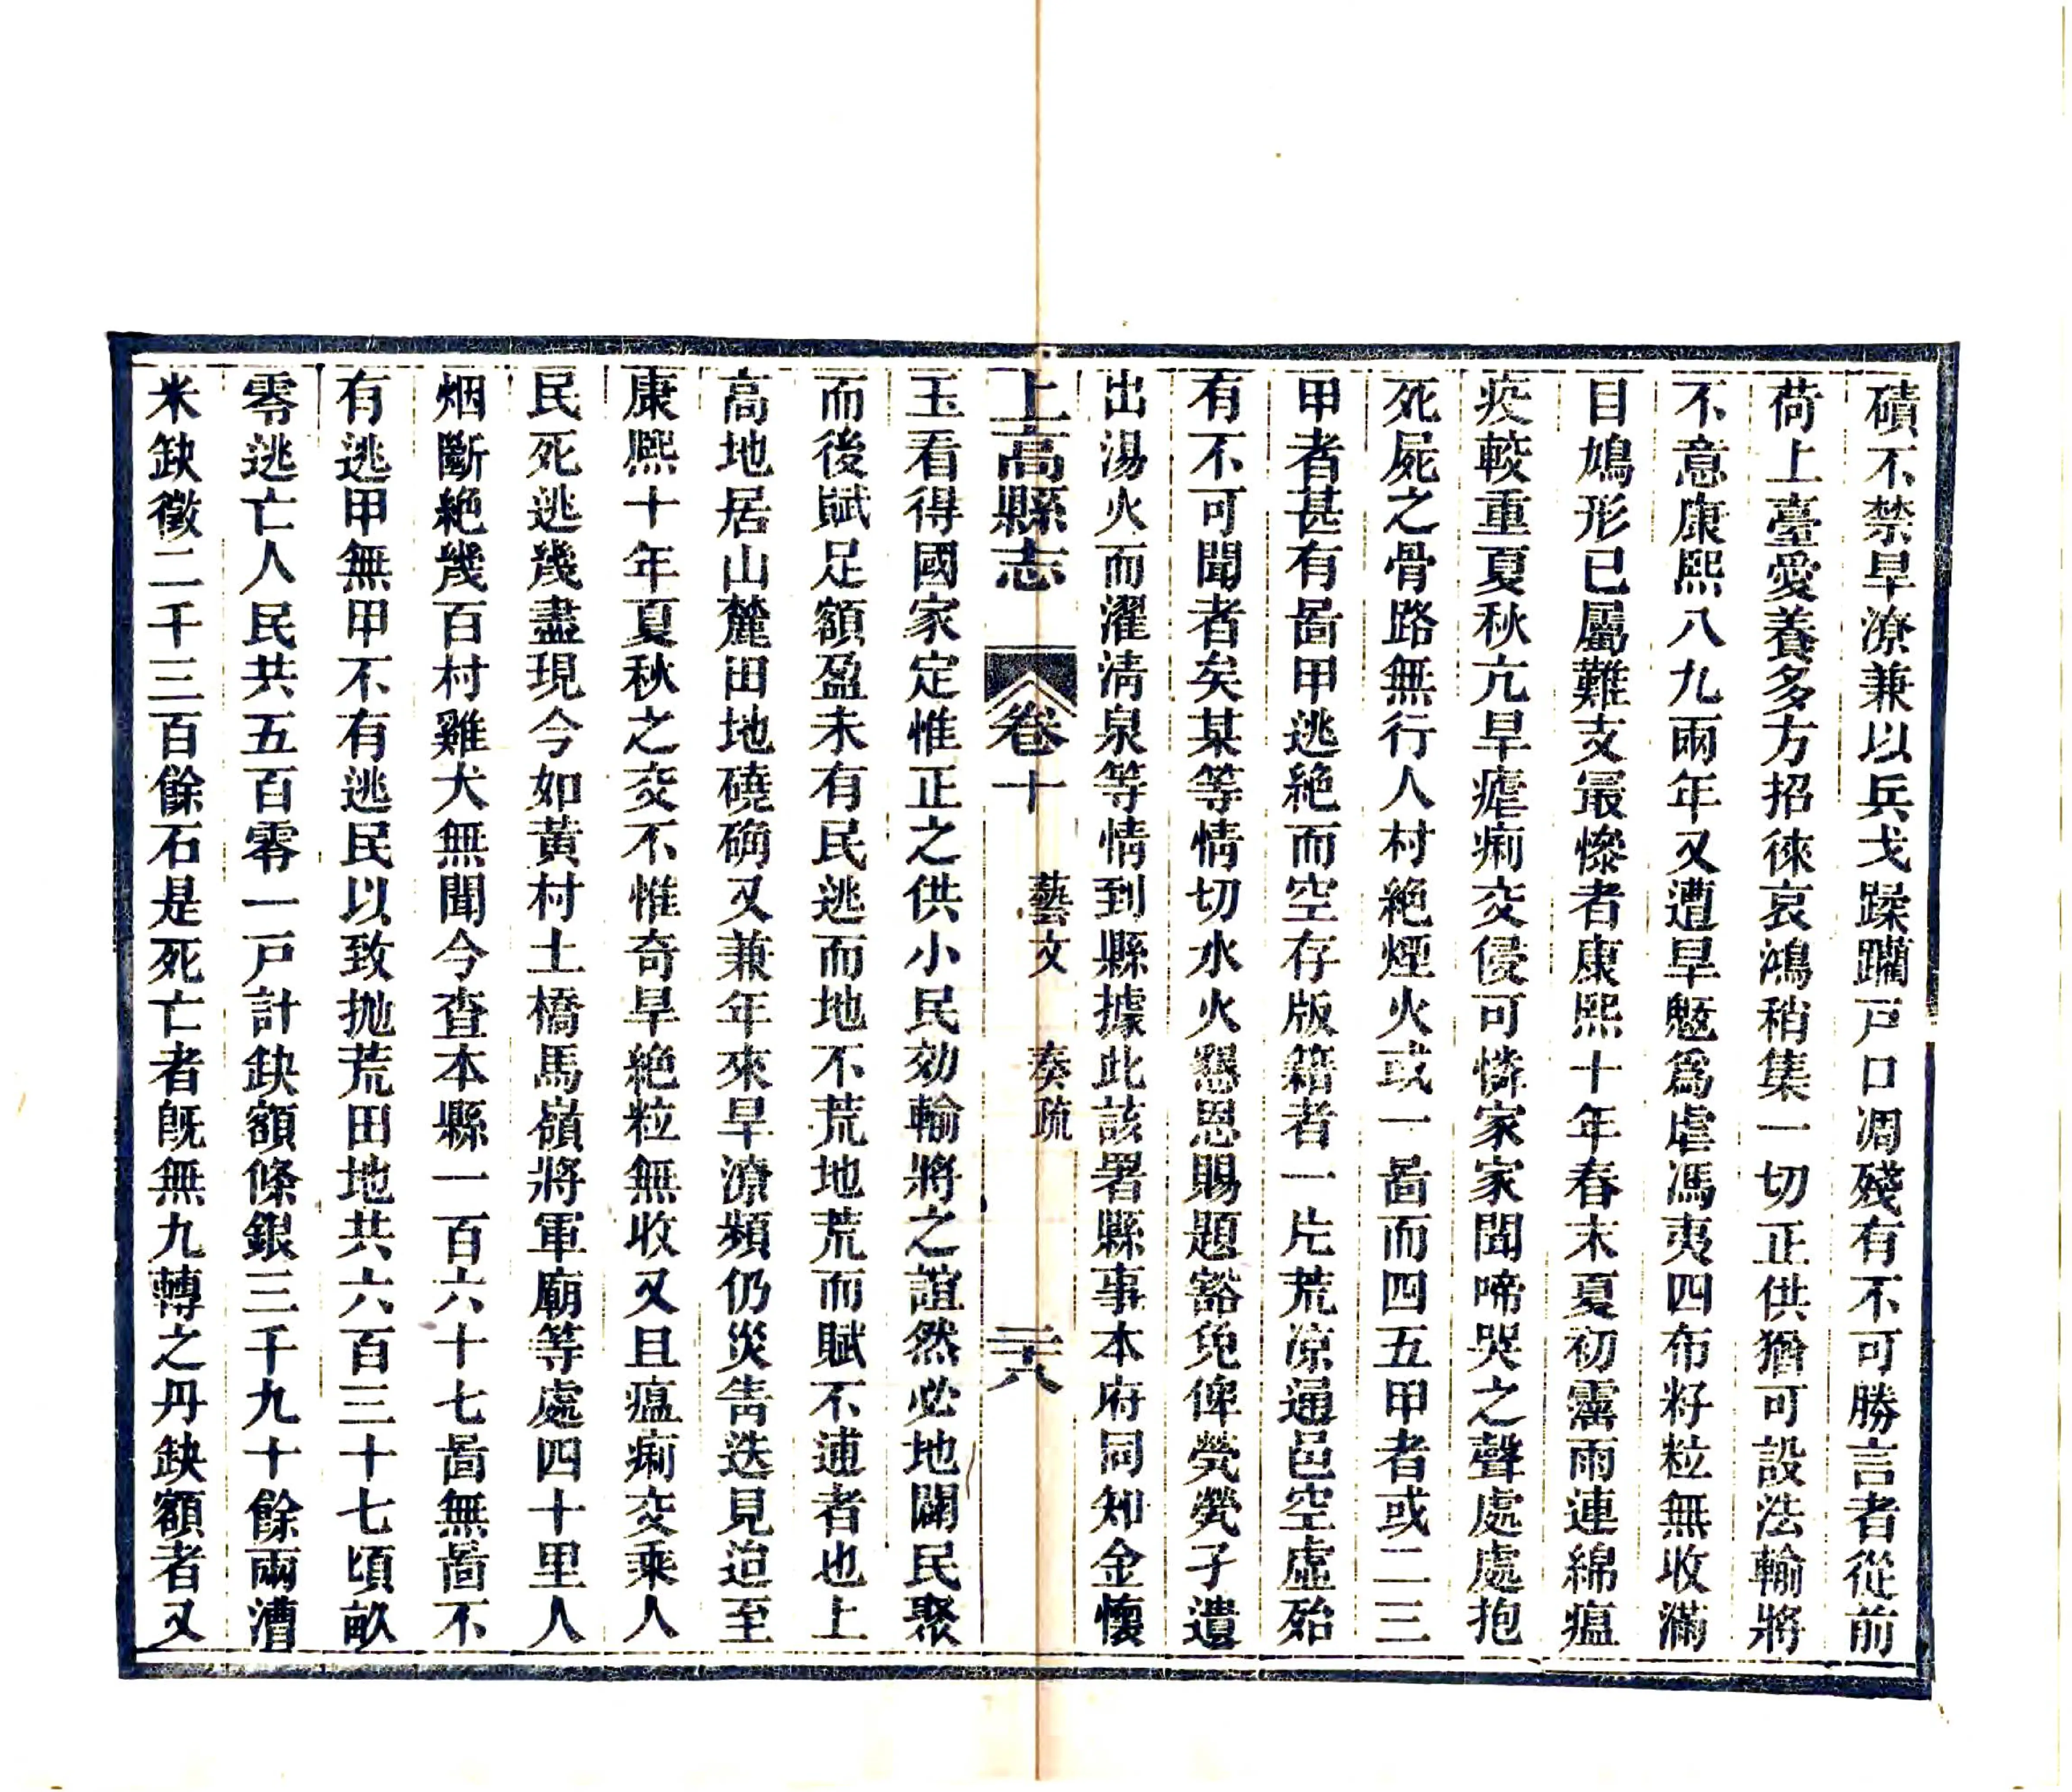 磧不禁旱潦兼以兵戈蹂躪戸口凋殘有不可勝言者從前
荷上臺愛養多方招徠哀鴻稍集一切正供猶可設法輸將
不意康熙八九兩年又遭旱魃爲虐馮夷四布籽粒無收滿
目鳩形已屬難支最慘者康熙十年春末夏初霪雨連綿瘟
疫較重夏秋亢旱瘧痢交侵可憐家家聞啼哭之聲處處抱
死屍之骨路無行人村絶煙火或一啚而四五甲者或二三
甲者甚有啚甲逃絶而空存版籍者一片荒凉通邑空虛殆
有不可聞者矣某等情切水火懇恩賜題豁免俾煢煢孑遺
出湯火而濯清泉等情到縣據此該署縣事本府同知金懷
上高縣志 卷十 藝文 奏疏 二十八
玉看得國家定惟正之供小民効輸將之誼然必地闢民聚
而後賦足額盈未有民逃而地不荒地荒而賦不逋者也上
高地居山麓田地磽确又兼年來旱潦頻仍災眚迭見迨至
康熙十年夏秋之交不惟奇旱絶粒無收又且瘟痢交乘人
民死逃幾盡現今如黃村土橋馬嶺將軍廟等處四十里人
烟斷絶幾百村雞犬無聞今查本縣一百六十七啚無啚不
有逃甲無甲不有逃民以致抛荒田地共六百三十七頃畝
零逃亡人民共五百零一戸計缺額條銀三千九十餘兩漕
米缺徵二千三百餘石是死亡者旣無九轉之丹缺額者又